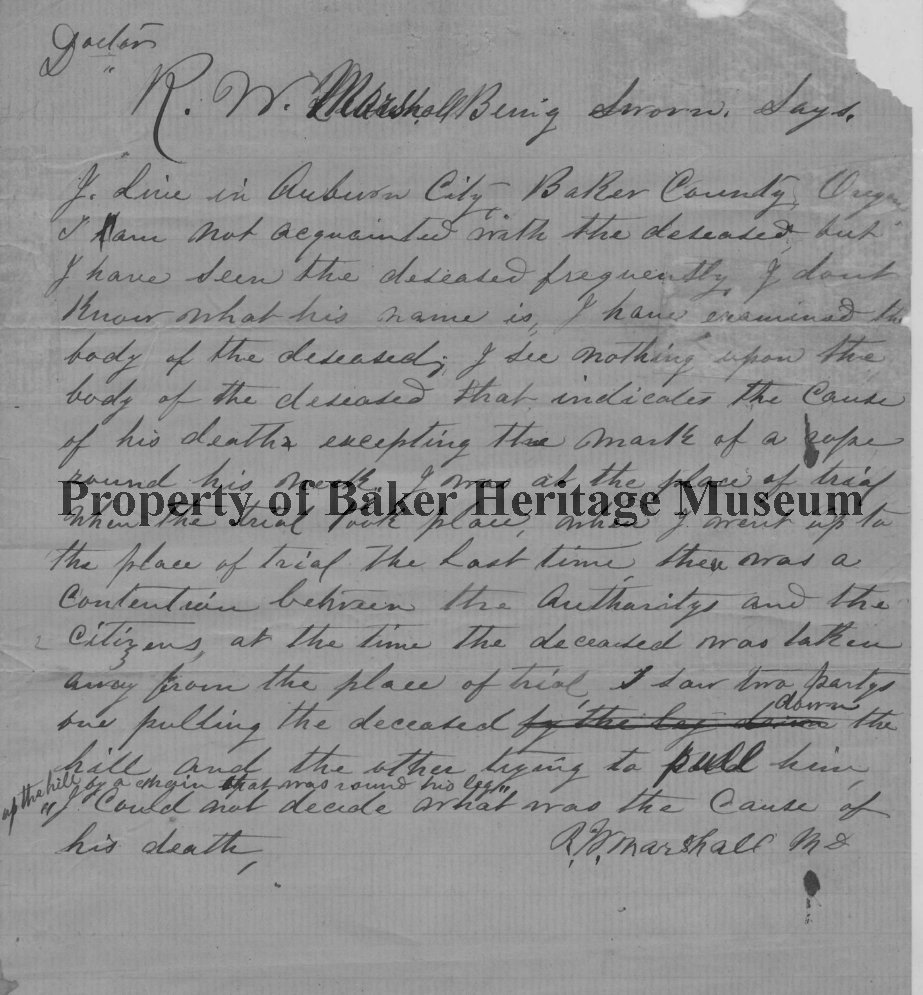 Doctor
R. W. Marshall Being Sworn. Says.
I. Live in Auburn City, Baker County, Oregon
I am not acquainted with the deseased, but
I have seen the deseased frequently, I dont
Know what his name is, I have examined the
body of the deseased, I see nothing upon the
body of the deseased that indicates the Cause
of his death, excepting the mark of a rope
round his neck, I was at the place of trial
Property of Baker Heritage Museum
when the trial took place, when I went up to
the place of trial the last time, there was a
contention between the Authoritys and the
Citizens, at the time the deceased was taken
away from the place of trial, I saw two partys
down
one pulling the deceased by the leg down the
hill, and the other trying to pull him,
up the hill by a chain that was round his leg"
"I Could not decide what was the Cause of
his death, R. W. Marshall MD